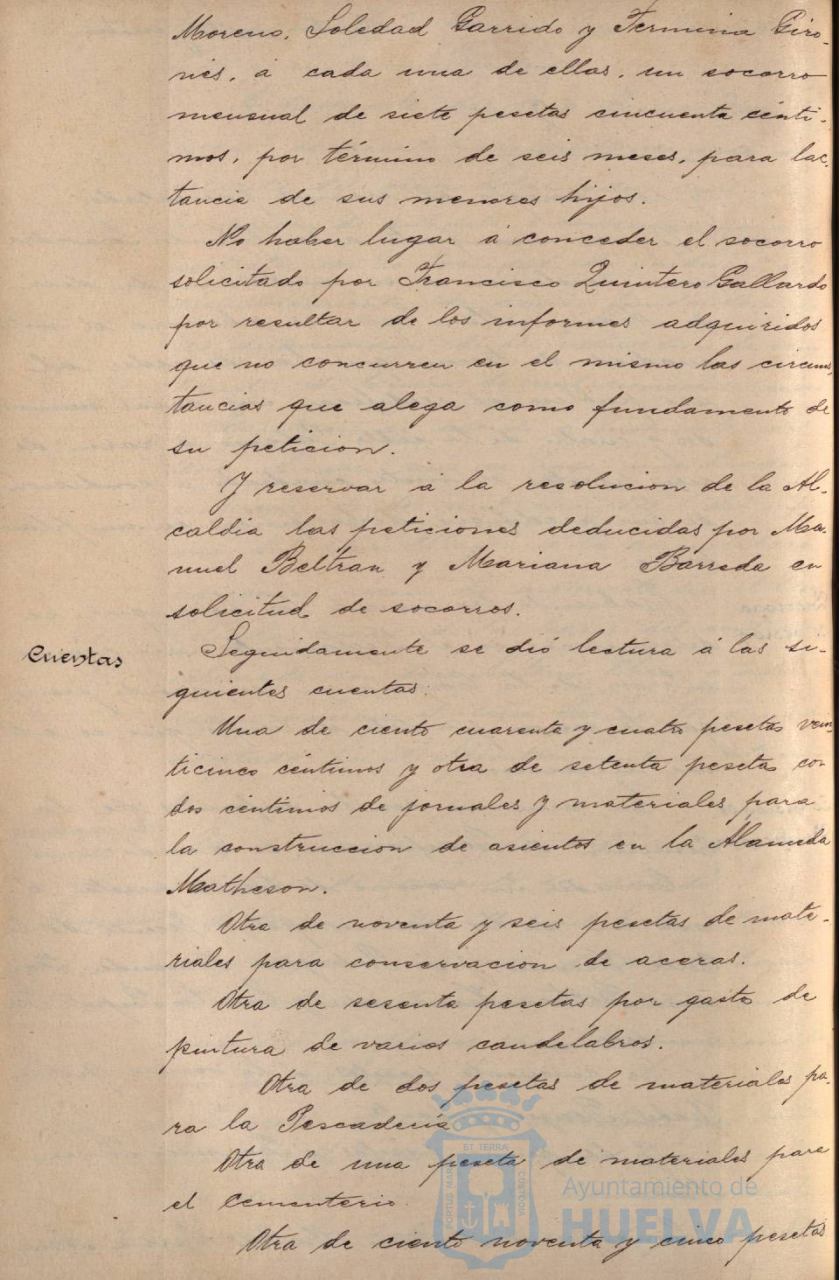 Moreno, Soledad Garrido y Fermina Giro-
nés, á cada una de ellas, un socorro
mensual de siete pesetas cincuenta cénti-
mos, por término de seis meses, para lac-
tancia de sus menores hijos.
No haber lugar á conceder el socorro
solicitado por Francisco Quintero Gallardo
por resultar de los informes adquiridos
que no concurren en el mismo las circuns-
tancias que alega como fundamento de
su peticion.
Y reservar á la resolucion de la Al-
caldia las peticiones deducidas por Ma-
nuel Beltran y Mariana Barreda en
solicitud de socorros.
Cuentas
Seguidamente se dió lectura á las si-
guientes cuentas:
Una de ciento cuarenta y cuatro pesetas vein-
ticinco céntimos y otra de setenta pesetas con
dos céntimos de jornales y materiales para
la construccion de asientos en la Alameda
Matheson.
Otra de noventa y seis pesetas de mate-
riales para conservacion de aceras.
Otra de sesenta pesetas por gasto de
pintura de varios candelabros.
Otra de dos pesetas de materiales pa-
ra la Pescadería
Otra de una peseta de materiales para
el cementerio.
Otra de ciento noventa y cinco pesetas
PORTUS MARIS ET TERRAE CUSTODIA
Ayuntamiento de
HUELVA